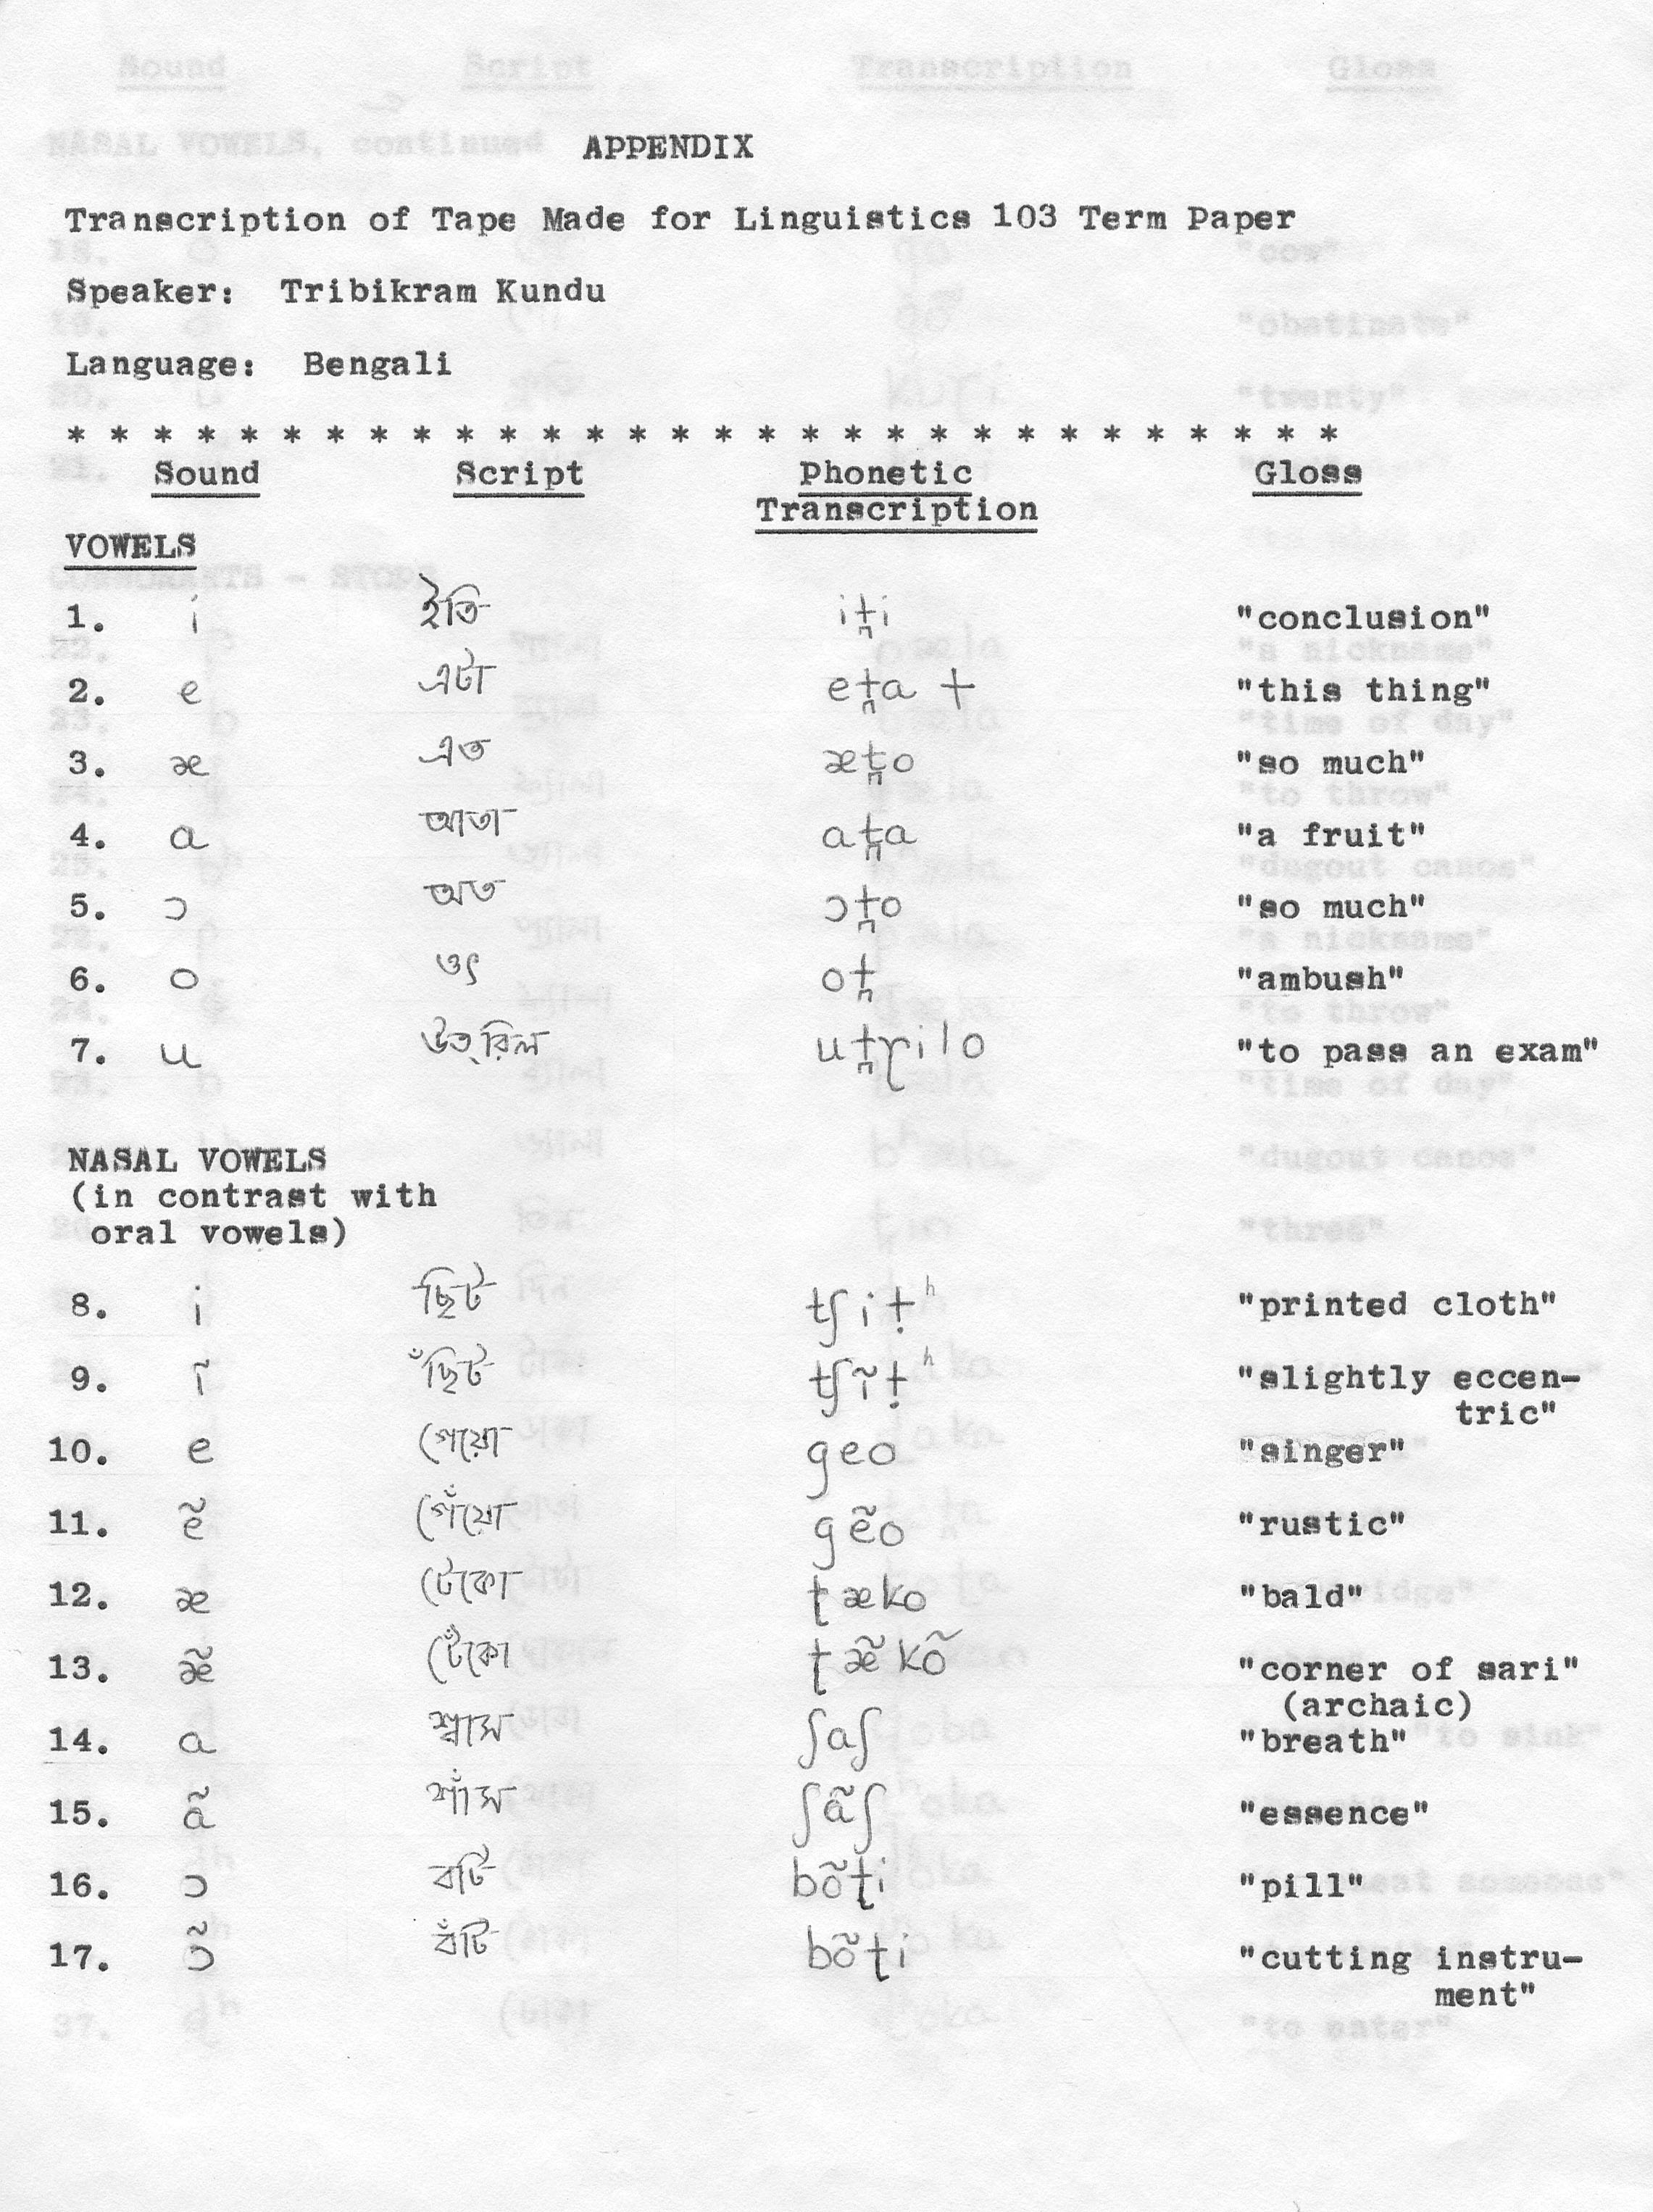 APPENDIX
Transcription of Tape Made for Linguistics 103 Term Paper
Speaker: Tribikram Kundu
Language: Bengali
* * * * * * * * * * * * * * * * * * * * * * * * * * * * * *
Sound Script Phonetic Gloss
Transcription
VOWELS
1. i ইতি it̪i "conclusion"
2. e এটা et̪a + "this thing"
3. æ এত æt̪o "so much"
4. a আতা at̪a "a fruit"
5. ɔ অত ɔt̪o "so much"
6. o ওৎ ot̪ "ambush"
7. u উত্‌রিল ut̪ɽilo "to pass an exam"
NASAL VOWELS
(in contrast with
oral vowels)
8. i ছিট tʃiṭʰ "printed cloth"
9. ĩ ছিঁট tʃĩṭʰ "slightly eccen-
tric"
10. e গেয়ো geo "singer"
11. ẽ গেঁয়ো gẽo "rustic"
12. æ টেকো ʈæko "bald"
13. æ̃ টেঁকো ʈæ̃kõ "corner of sari"
(archaic)
14. a শ্বাস ʃaʃ "breath"
15. ã শাঁস ʃãʃ "essence"
16. ɔ বটি bõʈi "pill"
17. ɔ̃ বঁটি bõʈi "cutting instru-
ment"